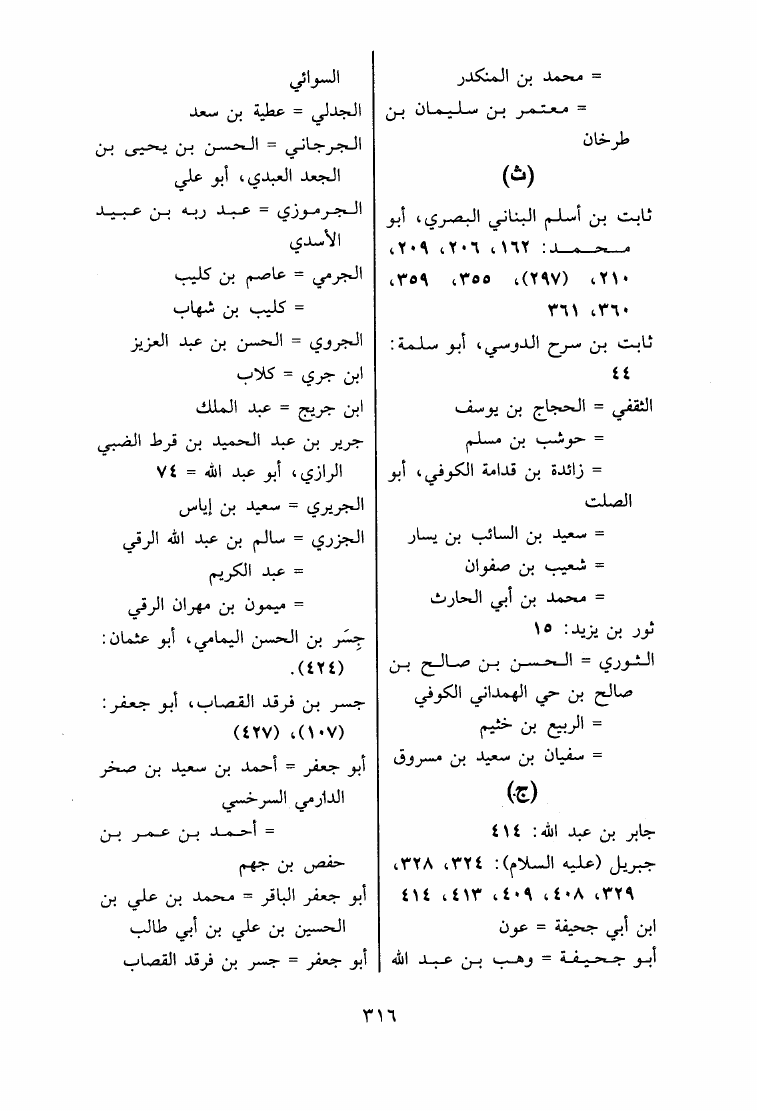 = محمد بن المنكدر
= معتمر بن سليمان بن
طرخان
(ث)
ثابت بن أسلم البناني البصري، أبو
محمد: ١٦٢، ٢٠٦، ٢٠٩،
٢١٠، (٢٩٧)، ٣٥٥، ٣٥٩،
٣٦٠، ٣٦١
ثابت بن سرح الدوسي، أبو سلمة:
٤٤
الثقفي = الحجاج بن يوسف
= حوشب بن مسلم
= زائدة بن قدامة الكوفي، أبو
الصلت
= سعيد بن السائب بن يسار
= شعيب بن صفوان
= محمد بن أبي الحارث
ثور بن يزيد: ١٥
الثوري = الحسن بن صالح بن
صالح بن حي الهمداني الكوفي
= الربيع بن خثيم
= سفيان بن سعيد بن مسروق
(ج)
جابر بن عبد الله: ٤١٤
جبريل (عليه السلام): ٣٢٤، ٣٢٨،
٣٢٩، ٤٠٨، ٤٠٩، ٤١٣، ٤١٤
ابن أبي جحيفة = عون
أبو جحيفة = وهب بن عبد الله
السوائي
الجدلي = عطية بن سعد
الجرجاني = الحسن بن يحيى بن
الجعد العبدي، أبو علي
الجرموزي = عبد ربه بن عبيد
الأسدي
الجرمي = عاصم بن كليب
= كليب بن شهاب
الجروي = الحسن بن عبد العزيز
ابن جري = كلاب
ابن جريج = عبد الملك
جرير بن عبد الحميد بن قرط الضبي
الرازي، أبو عبد الله = ٧٤
الجريري = سعيد بن إياس
الجزري = سالم بن عبد الله الرقي
= عبد الكريم
= ميمون بن مهران الرقي
جِسَر بن الحسن اليمامي، أبو عثمان:
(٤٢٤).
جسر بن فرقد القصاب، أبو جعفر:
(١٠٧)، (٤٢٧)
أبو جعفر = أحمد بن سعيد بن صخر
الدارمي السرخسي
= أحمد بن عمر بن
حفص بن جهم
أبو جعفر الباقر = محمد بن علي بن
الحسين بن علي بن أبي طالب
أبو جعفر = جسر بن فرقد القصاب
٣١٦